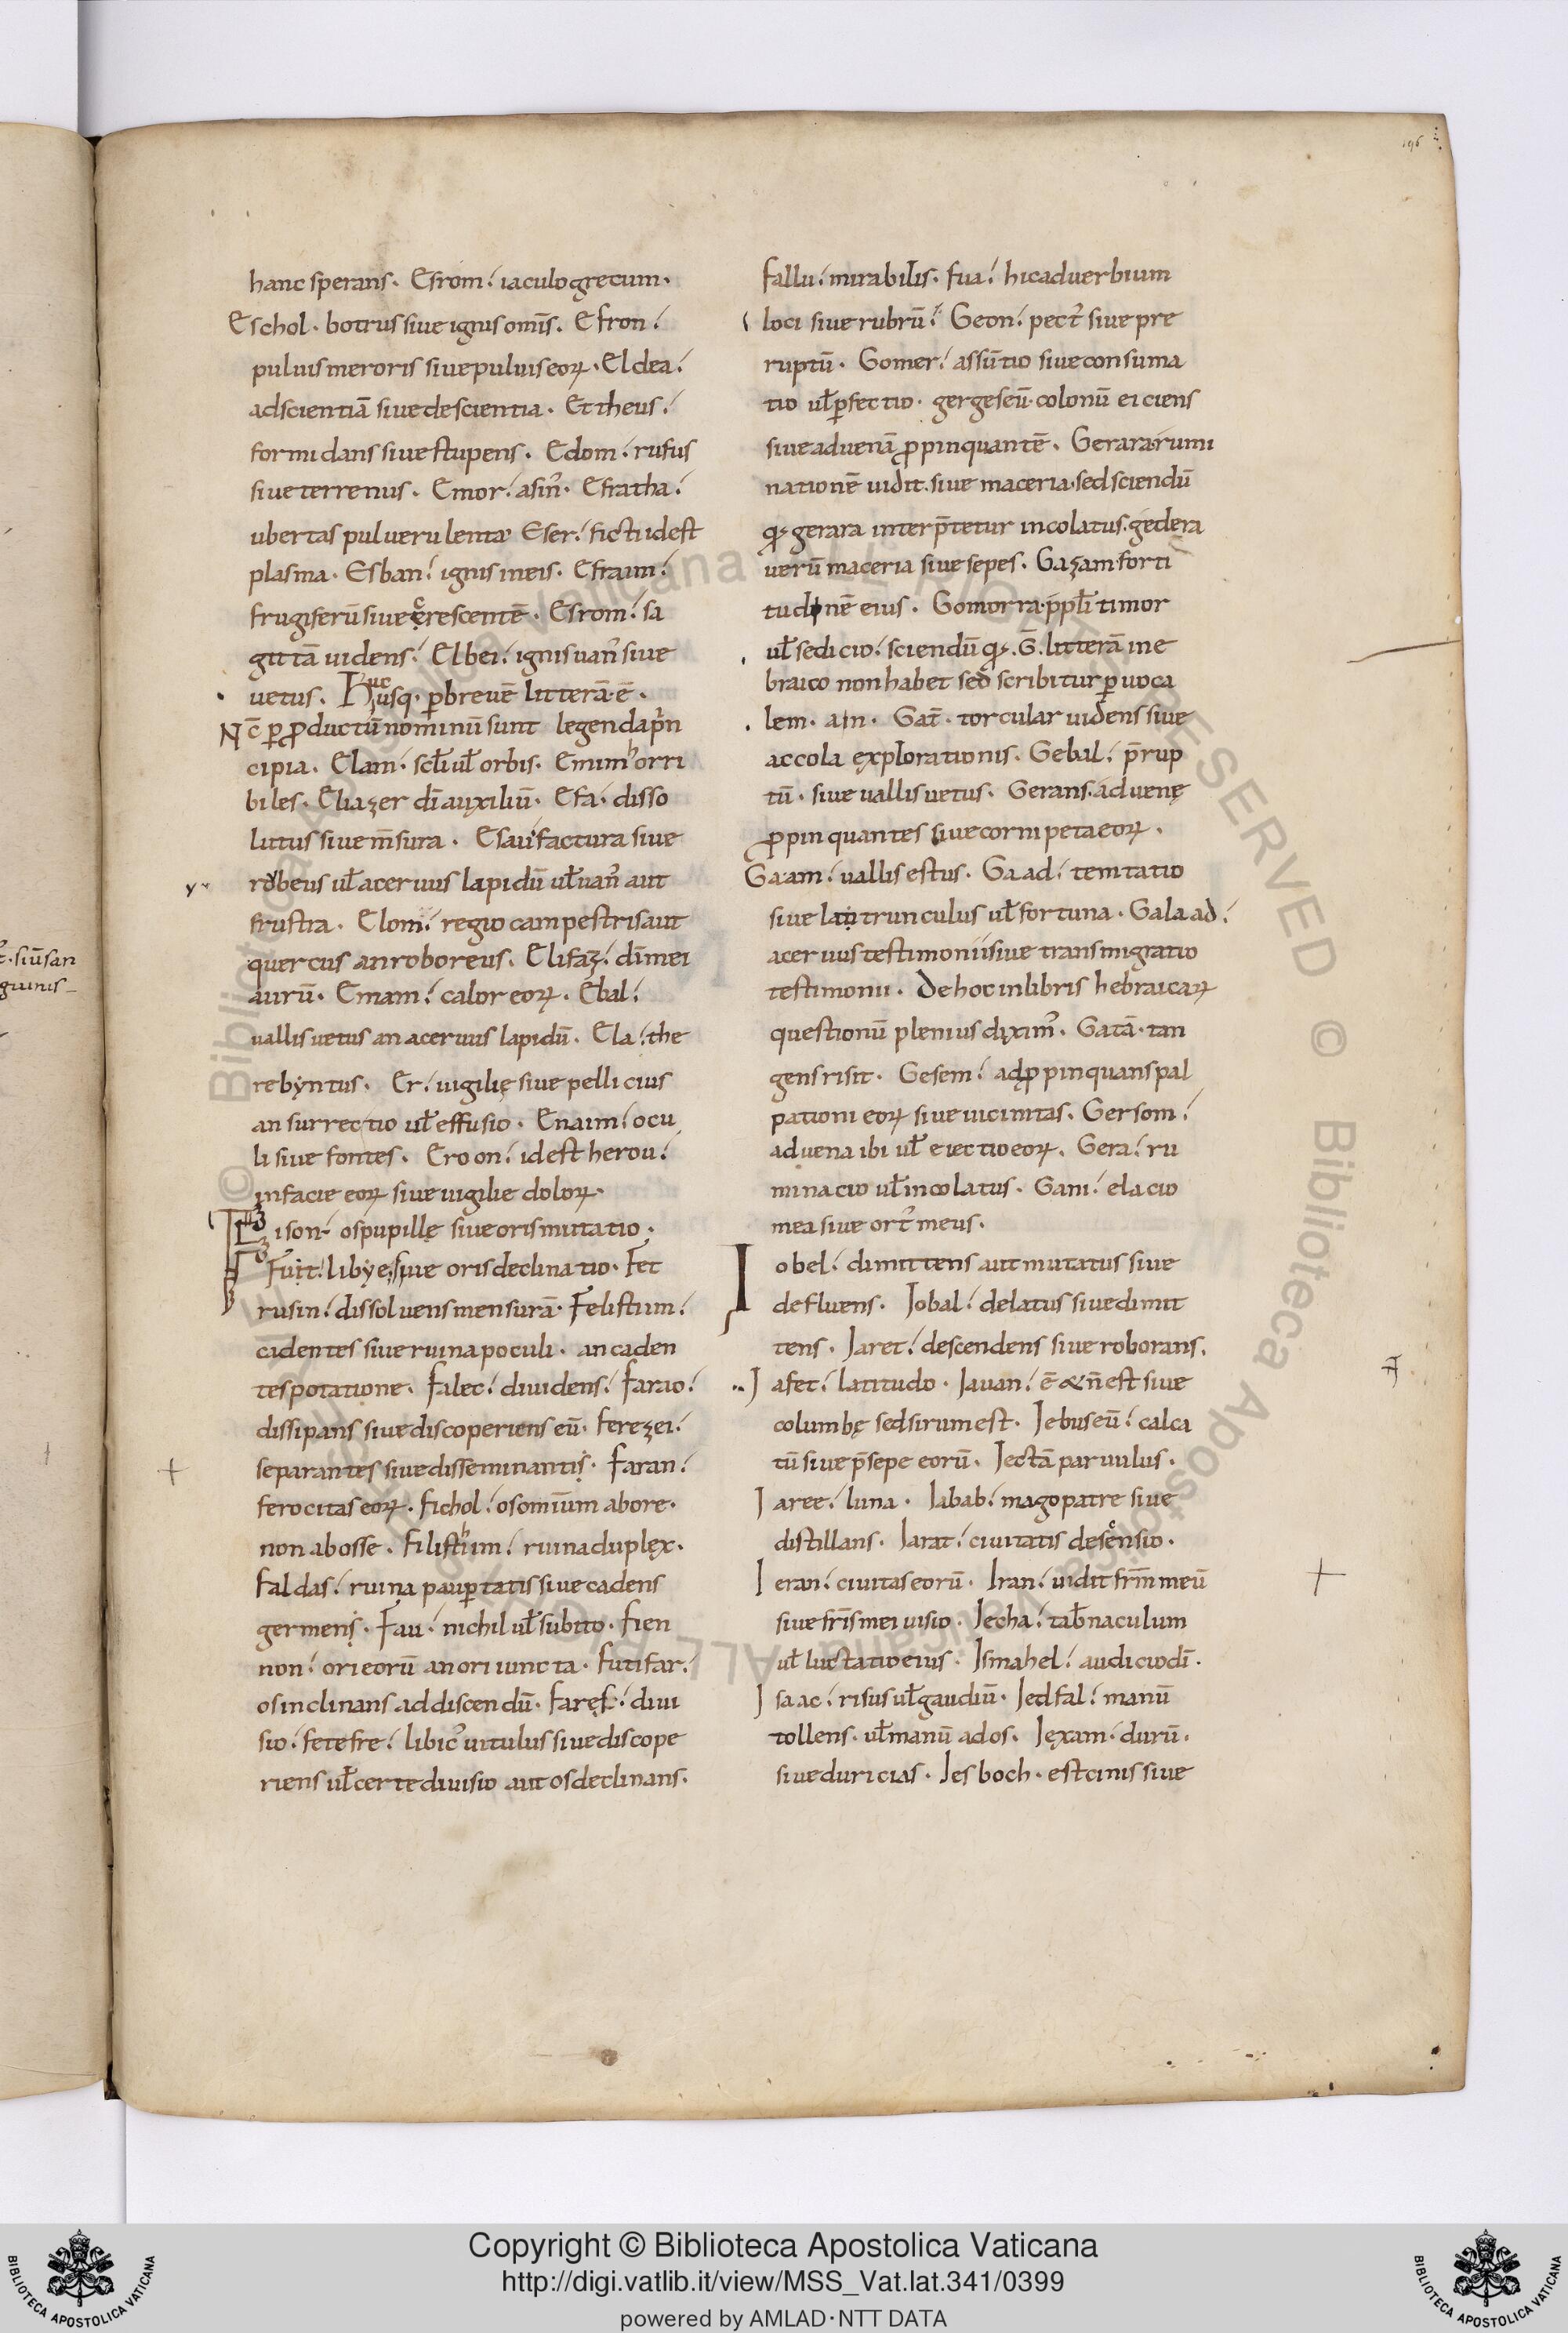 196
hanc sperans. Esrom! iaculo grecum.
Eschol. botrus siue ignis om̅s. Efron!
puluis meroris siue puluis eoꝝ. Eldea!
ad scientiā siue de scientia. Ettheus!
formidans siue stupens. Edom! rufus
siue terrenus. Emor! asin᷒. Efratha!
ubertas puluerulenta Eser! ficti idest
plasma. Esban! ignis ineis. Efraim!
frugiferū siue crescentē. Esrom! sa
gittā uidens! Elbei! ignis uan᷒ siue
uetus. Hucusq. ꝑ breuē litterā. ē.
Nc̄ ꝑ ꝓductū nominū sunt legenda p̄n
cipia. Elam. scl̄i ul̄ orbis. Emim horri
biles. Eliazer dī auxiliū. Efa. disso
lutus siue m̄sura. Esau factura siue
robeus ul̄ aceruus lapidū ul̄ uan᷒ aut
frustra. Elom! regio campestris aut
quercus an roboreus. Elifaz! dī mei
aurū. Emam! calor eoꝝ. Ebal!
uallis uetus an aceruus lapidū. Ela! the
rebyntus. Er! uigilię siue pellicius
an surrectio ul̄ effusio. Enaim! ocu
li siue fontes. Eroon! idest herou!
in facie eoꝝ siue uigilie doloꝝ.
Fison. os pupillę siue oris mutatio.
Fuit! libye, siue oris declinatio. Fet
rusin! dissoluens mensurā. Felistiim!
cadentes siue ruina poculi. an caden
tes potatione. Falec! diuidens! Farao!
dissipans siue discoperiens eū. ferezei!
separantes siue disseminantis. Faran!
ferocitas eoꝝ. fichol! os omīum ab ore.
non ab osse. filisthim! ruina duplex.
Faldas! ruina pauꝑtatis siue cadens
germens. Fau. nichil ul̄ subito. Fien
non! ori eorū an ori iuncta. Futifar!
os inclinans ad discendū. Faręf! diui
sio! fetefre! libic᷒ uitulus siue discope
riens ul̄ certe diuisio aut os declinans.
fallu! mirabilis. fua! hic aduerbium
loci siue rubrū! Geon! pect᷒ siue pre
ruptū. Gomer! assūtio siue consuma
tio ul̄ ꝑfectio. gergeseū. colonū eiciens
siue aduenā ꝓpinquantē. Gerara rumi
nationē uidit. siue maceria. sed sciendū
qꝫ gerara interp̄tetur incolatus. gedera
uerū maceria siue sepes. Gazam forti
tudinē eius. Gomorra. ppl̄i timor
ul̄ sedicio! sciendū qꝫ. G̅. litterā in e
braico non habet sed scribitur ꝑ uoca
lem. ain. Gat̄. torcular uidens siue
accola explorationis. Gebal! p̄rup
tū. siue uallis uetus. Gerans. aduenę
ꝓpinquantes siue cornipeta eoꝝ.
Gaam! uallis estus. Gaad! temtatio
siue latrunculus ul̄ fortuna. Galaad!
aceruus testimonii siue transmigratio
testimonii. De hoc in libris hebraicaꝝ
questionū plenius dixim᷒. Gatā. tan
gens risit. Gesem! adꝓpinquans pal
pationi eoꝝ siue uicinitas. Gersom!
aduena ibi ul̄ eiectio eoꝝ. Gera! ru
minacio ul̄ incolatus. Gani! elacio
mea siue ort᷒ meus.
Iobel! dimittens aut mutatus siue
defluens. Iobal! delatus siue dimit
tens. Iaret! descendens siue roborans.
Iafet! latitudo. Iauan! ē & n̄ est siue
columbę sed sirum est. Iebuseū! calca
tū siue p̄sepe eorū. Iectā paruulus.
Iaree! luna. Iabab! mago patre siue
distillans. Iarat! ciuitatis desensio.
Ieran! ciuitas eorū. Iran! uidit frm̄ meū
siue fris̄ mei uisio. Iecha! tab̄naculum
ul̄ luctatio eius. Ismahel! audicio dī.
Isaac! risus ul̄ gaudiū. Iedfal! manū
tollens. ul̄ manū ad os. Iexam. durū.
siue duricias. Iesboch. est cinis siue
siū san
guinis
Copyright © Biblioteca Apostolica Vaticana
http://digi.vatlib.it/view/MSS_Vat.lat.341/0399
powered by AMLAD·NTT DATA